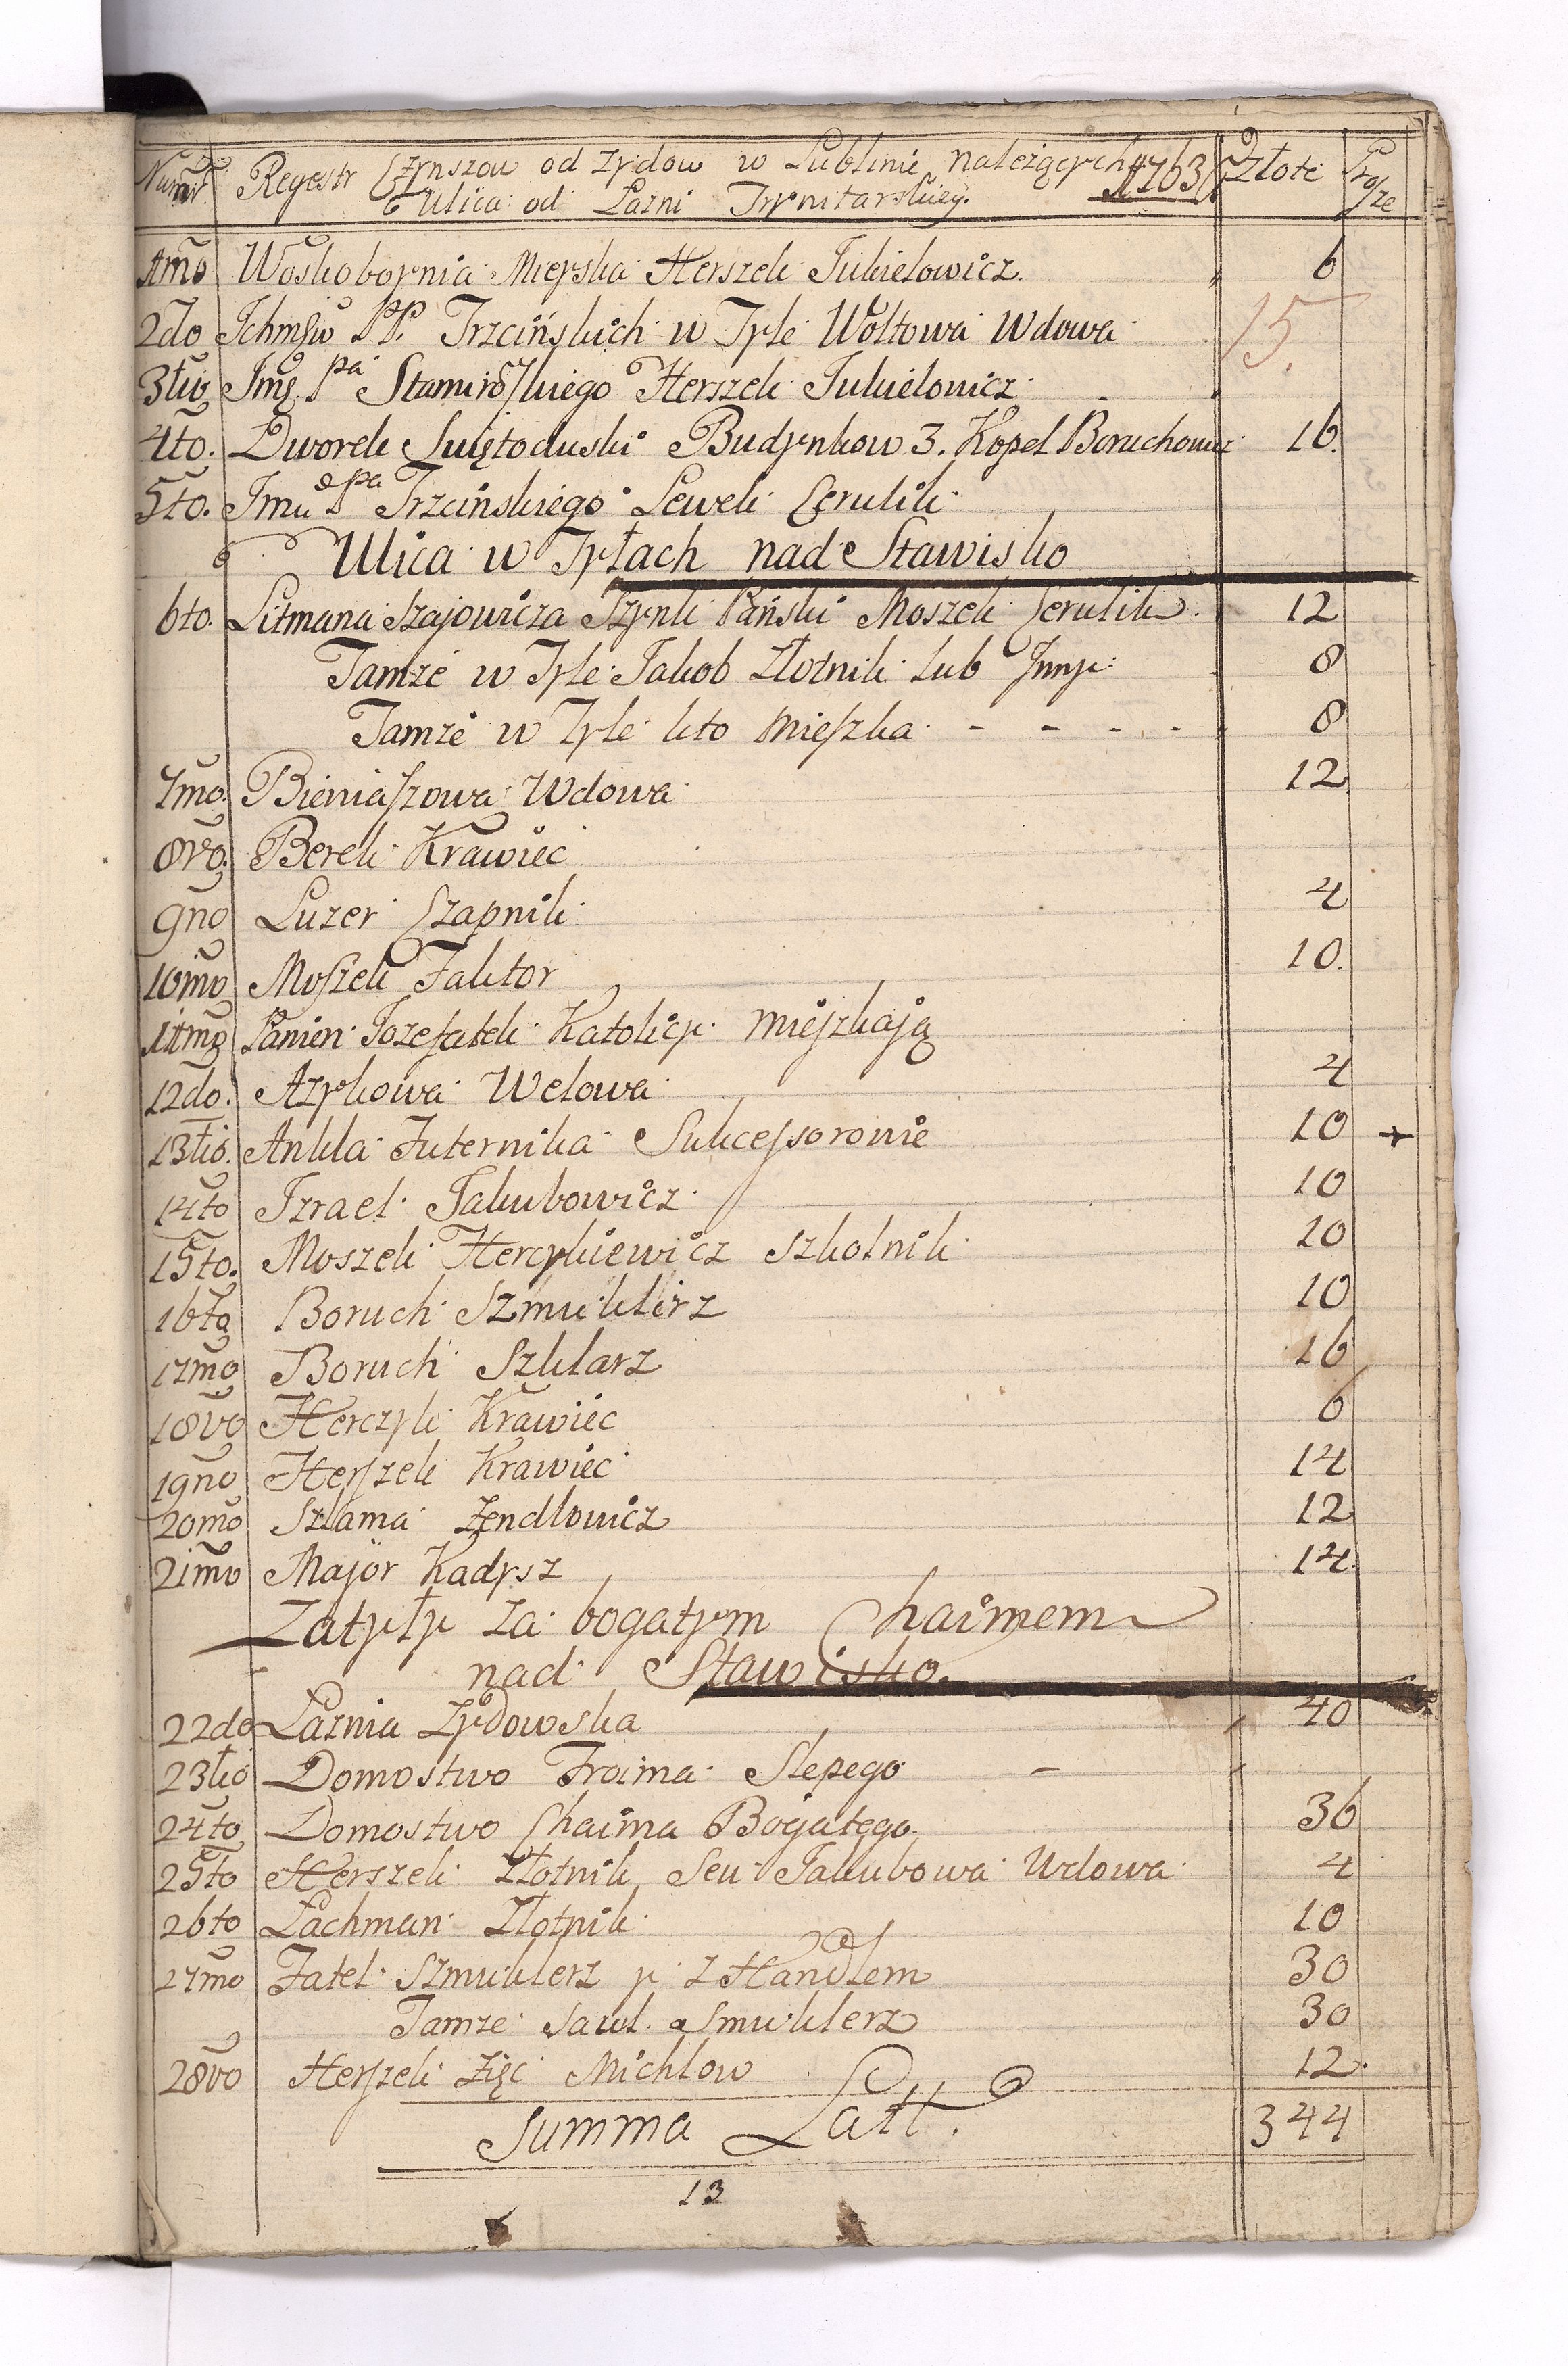 Numr. Regestr Czynszow od Zydow w Lublinie należących 1763 Złote Grosze
Ulica od Łazni Trynitarskiey.
1mo Woskoboynia Mieyska Herszek Jukielowicz. 6
2do Ichmśćiw PP. Trzcińskich w Tyle Wołtowa Wdowa 15.
3tio Jmś. Pa Stamiroskiego Herszek Jukielowicz
4to. Dworek Swiętoduski Budynkow 3. Kopel Boruchowicz 16.
5to. Jmci Pa Trzcińskiego Lewek Cerulik
Ulica w Tyłach nad Stawisko
6to. Litmana Szajowicza Szynk Pański Moszek Cerulik. 12
Tamże w Tyle Jakob Złotnik lub Inny 8
Tamże w Tyle kto Mieszka - - - - 8
7mo. Bieniaszowa Wdowa 12
8vo. Berek Krawiec
9no Luzer Czapnik 4
10mo Moszek Faktor 10.
11mo Panien Jozefatek Katolicy mieszkają
12do. Azykowa Wdowa 4
13tio. Ankla Futernika Sukcessorowie 10 +
14to Izrael Jakubowicz 10
15to. Moszek Hercykiewicz Szkolnik 10
16to Boruch Szmuklirz 10
17mo Boruch Szklarz 16
18vo Herczyk Krawiec 6
19no Herszek Krawiec 14
20mo Szlama Zendlowicz 12
21mo Major Kadysz 14.
Zatyły za bogatym Chaimem
nad Stawisko.
22do Łaznia Zydowska 40
23tio Domostwo Froima Slepego -
24to Domostwo Chaima Bogatego. 36
25to Herszek Złotnik Seu Jakubowa Wdowa 4
26to Lachman Złotnik 10
27mo Fatel Szmuklerz y z Handlem 30
Tamze Sawl. Smuklerz 30
28vo Herszek Zięć Michlow 12.
Summa Latt. 344
13